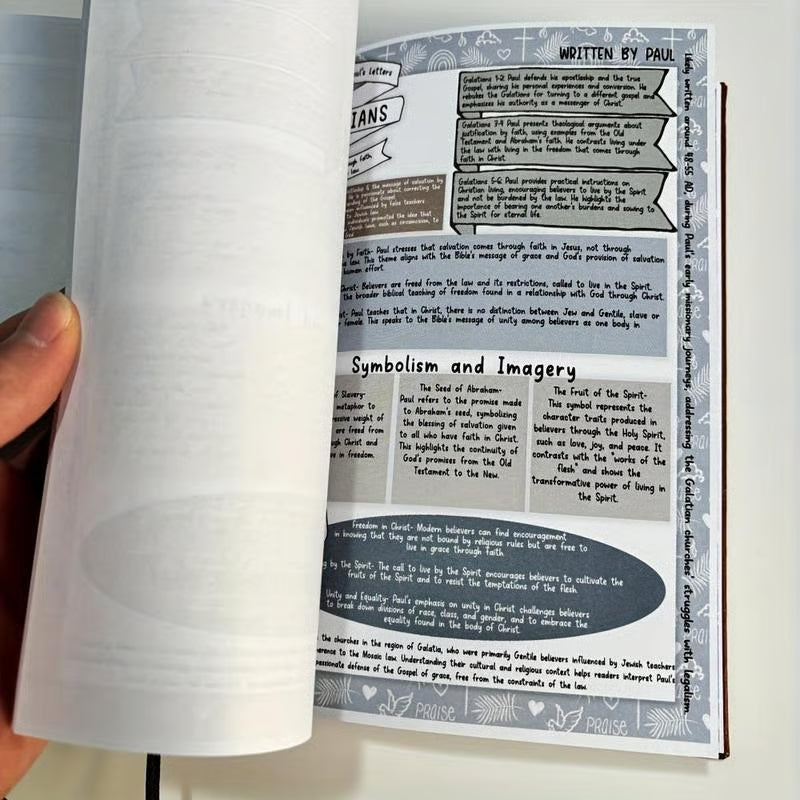 WRITTEN BY PAUL
Paul's Letters
IANS
through faith
law
Galatians 1-2: Paul defends his apostleship and the true
Gospel, sharing his personal experiences and conversion. He
rebukes the Galatians for turning to a different gospel and
emphasizes his authority as a messenger of Christ.
Galatians 3-4: Paul presents theological arguments about
justification by faith, using examples from the Old
Testament and Abraham's faith. He contrasts living under
the law with living in the freedom that comes through
faith in Christ.
Galatians 5-6: Paul provides practical instructions on
Christian living, encouraging believers to live by the Spirit
and not be burdened by the law. He highlights the
importance of bearing one another's burdens and sowing to
the Spirit for eternal life.
& the message of salvation by
is passionate about correcting the
of the Gospel
influenced by false teachers
to Jewish law
individuals promoted the idea that
law, such as circumcision, to
by Faith- Paul stresses that salvation comes through faith in Jesus, not through
law. This theme aligns with the Bible's message of grace and God's provision of salvation
human effort.
Christ- Believers are freed from the law and its restrictions, called to live in the Spirit.
the broader biblical teaching of freedom found in a relationship with God through Christ.
Paul teaches that in Christ, there is no distinction between Jew and Gentile, slave or
female. This speaks to the Bible's message of unity among believers as one body in
Symbolism and Imagery
of Slavery-
metaphor to
ressive weight of
are freed from
ugh Christ and
ve in freedom.
The Seed of Abraham-
Paul refers to the promise made
to Abraham's seed, symbolizing
the blessing of salvation given
to all who have faith in Christ.
This highlights the continuity of
God's promises from the Old
Testament to the New.
The Fruit of the Spirit-
This symbol represents the
character traits produced in
believers through the Holy Spirit,
such as love, joy, and peace. It
contrasts with the "works of the
flesh" and shows the
transformative power of living in
the Spirit.
Freedom in Christ- Modern believers can find encouragement
in knowing that they are not bound by religious rules but are free to
live in grace through faith.
g by the Spirit- The call to live by the Spirit encourages believers to cultivate the
fruits of the Spirit and to resist the temptations of the flesh.
Unity and Equality- Paul's emphasis on unity in Christ challenges believers
to break down divisions of race, class, and gender, and to embrace the
equality found in the body of Christ.
the churches in the region of Galatia, who were primarily Gentile believers influenced by Jewish teachers
herence to the Mosaic law. Understanding their cultural and religious context helps readers interpret Paul's
passionate defense of the Gospel of grace, free from the constraints of the law.
likely written around 48-55 AD during Paul's early missionary journeys, addressing the Galatian churches' struggles with legalism.
PRAISE
PRAISE